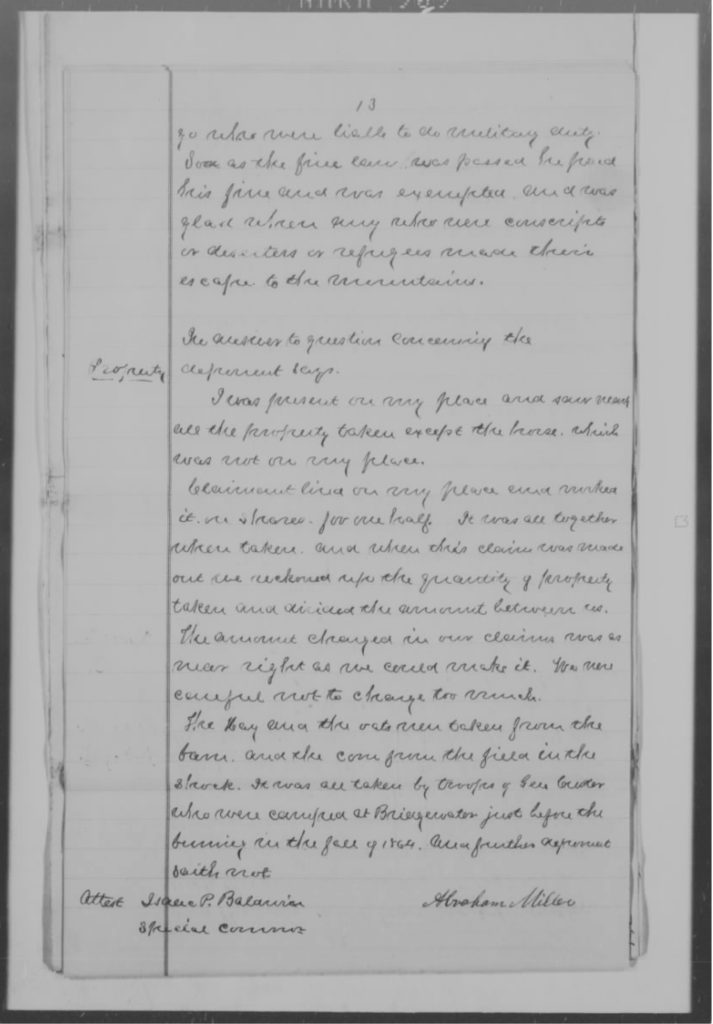 13
go who were liable to do military duty.
Soon as the fine law was passed he paid
his fine and was exempted. and was
glad when any who were conscripts
or deserters or refugees made their
escape to the mountains.
In answer to question concerning the
Property deponent says.
I was present on my place and saw nearly
all the property taken except the horse. which
was not on my place.
Claimant lived on my place and worked
it. on shares. for one half. It was all together
when taken. and when this claim was made
out we reckoned up the quantity of property
taken and divided the amount between us.
The amount charged in our claims was as
near right as we could make it. We were
careful not to charge too much.
The Hay and the oats were taken from the
barn. and the corn from the field in the
shock. It was all taken by troops of Gen Custer
who were camped at Bridgewater just before the
burning in the fall of 1864. And further deponent
saith not
Attest Isaac P. Baldwin Abraham Miller
Special Commr